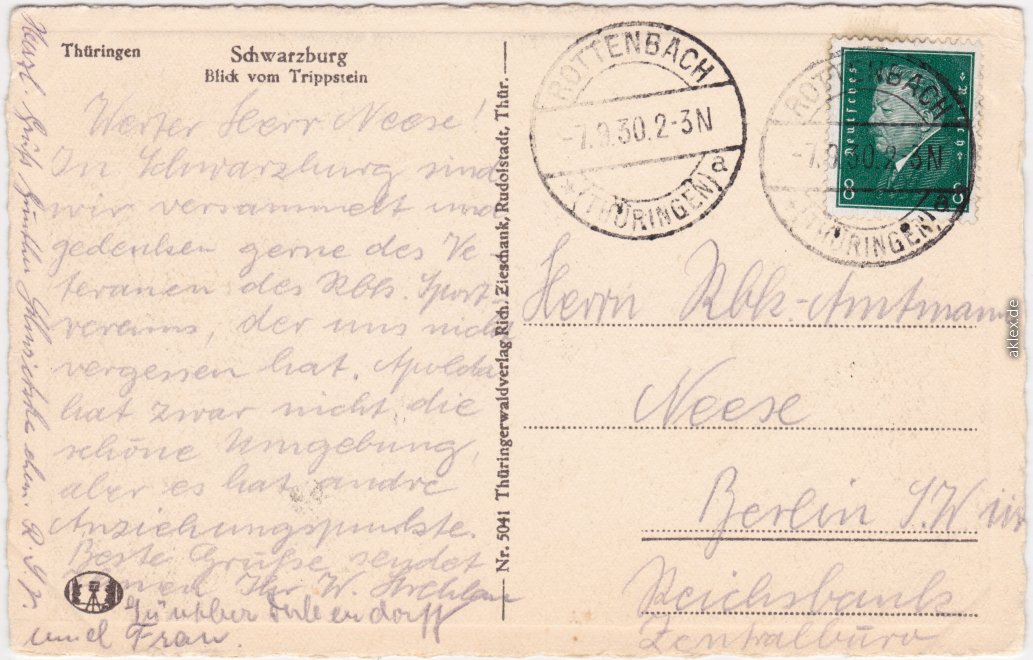 Thüringen
Schwarzburg
Blick vom Trippstein
Werter Herr Neese!
In Schwarzburg sind
wir versammelt und
gedenken gerne des Ve
teranen des Rbk. Sport
vereins, der uns nicht
vergessen hat. Apolda
hat zwar nicht die
schöne Umgebung,
aber es hat andre
Anziehungspunkte.
Beste Grüße sendet
Ihr W.
und Frau.
Herzl. Gruß Günther
Nr. 5041 Thüringerwaldverlag Rich. Zieschank, Rudolstadt, Thür.
ROTTENBACH
-7.9.30.2-3N
* (THÜRINGEN) a
ROTTENBACH
-7.9.30.2-3N
* (THÜRINGEN) a
Deutsches Reich
8 8
Herrn Rbk-Amtmann
Neese
Berlin S.W
Reichsbank
Zentralbüro
aklex.de